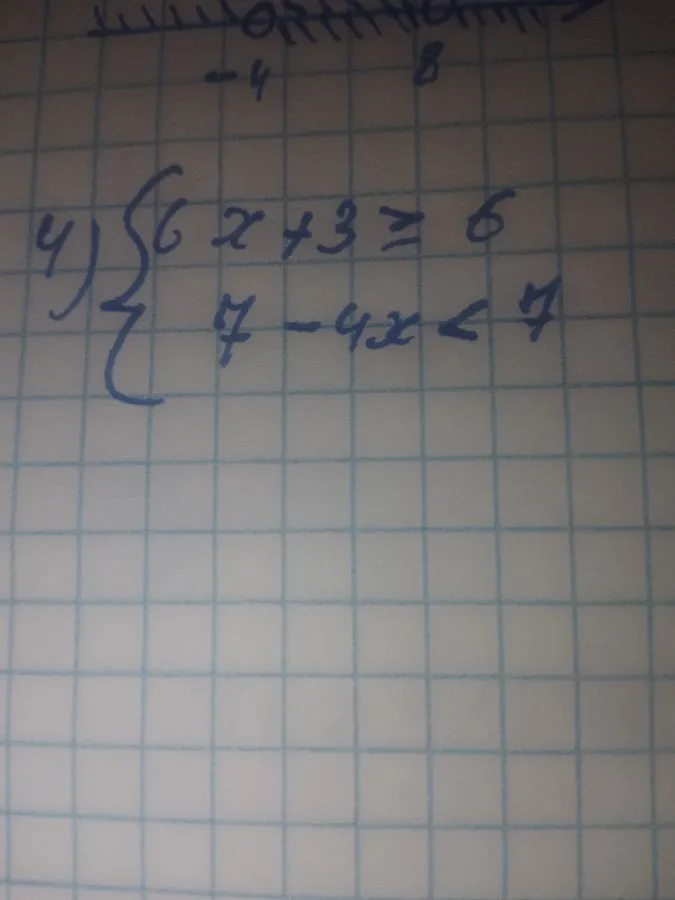 -4 8
4) { 6x + 3 ≥ 6
7 - 4x < 7